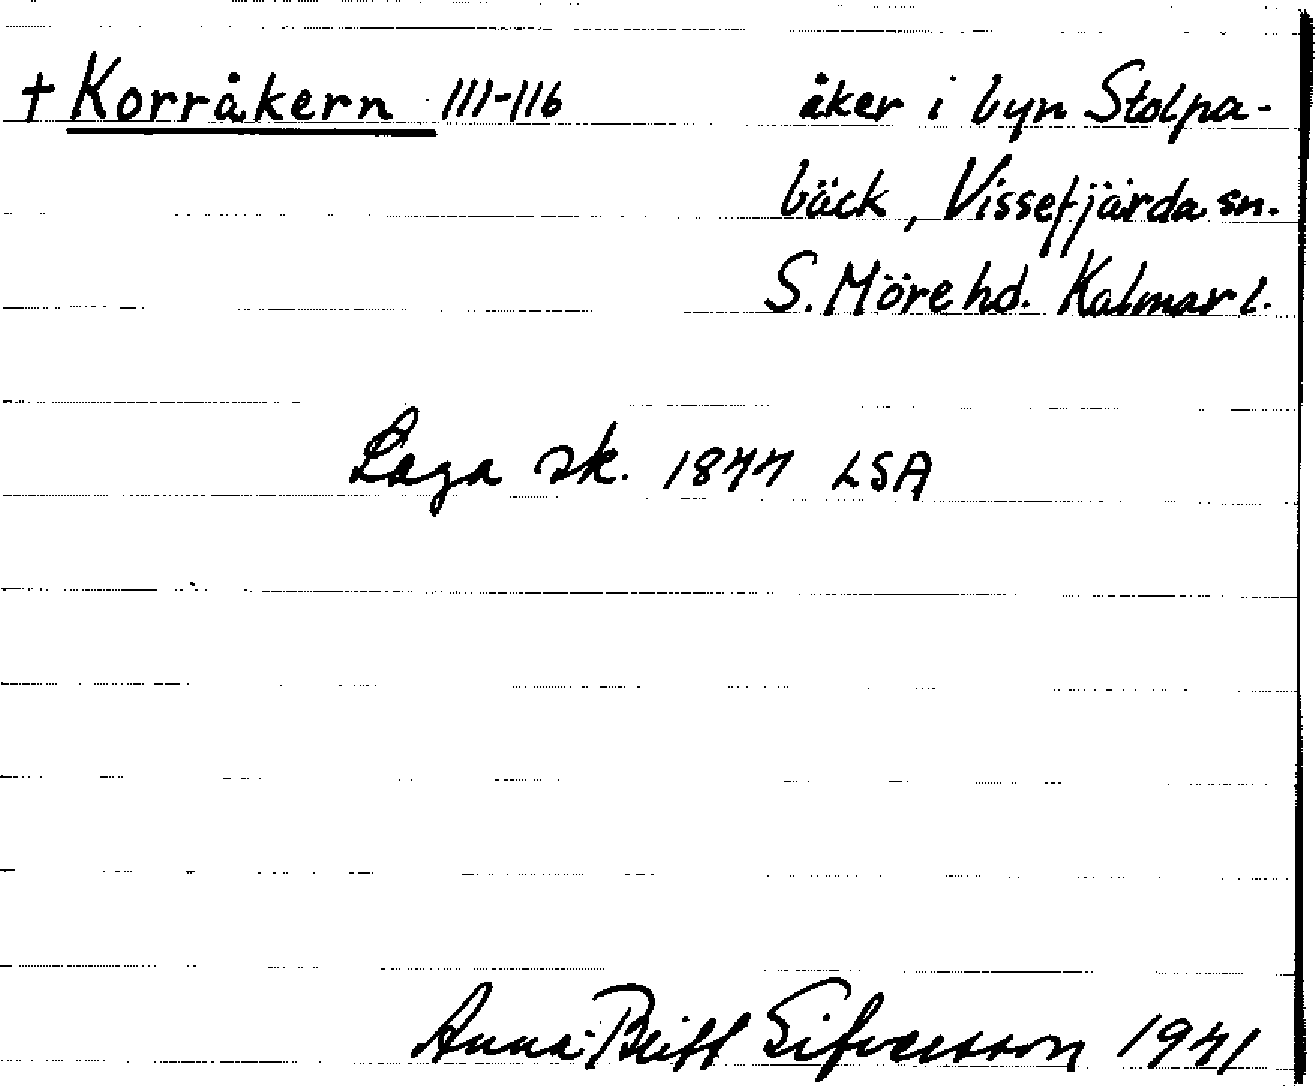 † Korråkern 111-116 åker i byn Stolpa-
bäck, Vissefjärda sn.
S. Möre hd. Kalmar l.
Laga sk. 1844 LSA
Anna-Britt Sifversson 1941